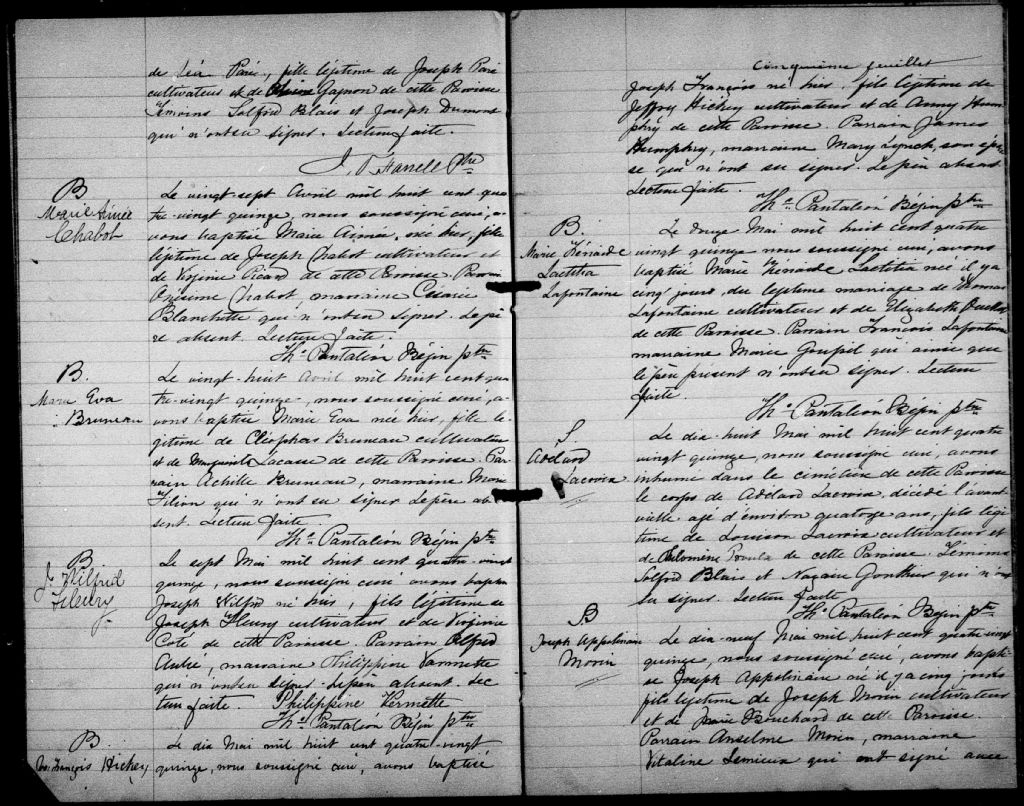 de Léa Paré, fille légitime de Joseph Paré
cultivateur et de Gagnon de cette Paroisse
Témoins Solfrid Blais et Joseph Dumont
qui n'ont su signer. Lecture faite.
Ptre
B
Marie Aimée
Chabot
Le vingt-sept Avril mil huit cent qua
tre-vingt quinze, nous soussigné curé, a-
vons baptisé Marie Aimée, née hier, fille
légitime de Joseph Chabot cultivateur et
de Virginie Picard de cette Paroisse. Parrain
Onésime Chabot, marraine Césarie
Blanchette qui n'ont su signer. Le pè
re absent. Lecture faite.
Ths Pantaléon Bégin ptre
B.
Marie Eva
Bruneau
Le vingt-huit Avril mil huit cent qua
tre-vingt quinze, nous soussigné curé, a-
vons baptisé Marie Eva née hier, fille lé
gitime de Cléophas Bruneau cultivateur
et de Marguerite Lacasse de cette Paroisse. Par-
rain Achille Bruneau, marraine
Filion qui n'ont su signer. Le père ab
sent. Lecture faite.
Ths Pantaléon Bégin ptre
B
Js Wilfrid
Fleury
Le sept Mai mil huit cent quatre-vingt
quinze, nous soussigné curé avons baptisé
Joseph Wilfrid né hier, fils légitime de
Joseph Fleury cultivateur et de Virginie
Coté de cette Paroisse. Parrain
marraine Philippine Vermette
qui n'ont su signer. Le père absent. Lec
ture faite. Philippine Vermette
Ths Pantaléon Bégin ptre
B.
Jos. François Hickey
Le dix Mai mil huit cent quatre-vingt
quinze, nous soussigné curé, avons baptisé
Cinquième feuillet
Joseph François né hier. fils légitime de
Jeffrey Hickey cultivateur et de Anny Hum
phry de cette Paroisse. Parrain James
Humphry, marraine Mary Lynch, son épou
se qui n'ont su signer. Le père absent
Lecture faite.
Ths Pantaléon Bégin ptre
B.
Marie Hénaïde
Laetitia
Lafontaine
Le douze Mai mil huit cent quatre
vingt quinze nous soussigné curé, avons
baptisé Marie Hénaïde Laetitia née il y a
cinq jours, du légitime mariage de Thomas
Lafontaine cultivateur et de Elizabeth Ouellet
de cette Paroisse. Parrain François Lafontaine
marraine Marie Goupil qui ainsi que
le père présent n'ont su signer. Lecture
faite.
Ths Pantaléon Bégin ptre
S.
Adélard
Lacroix
Le dix-huit Mai mil huit cent quatre
vingt quinze, nous soussigné curé, avons
inhumé dans le cimetière de cette Paroisse
le corps de Adélard Lacroix, décédé l'avant
veille agé d'environ quatorze ans, fils légi
time de Louison Lacroix cultivateur et
de Philomène de cette Paroisse. Témoins
Solfrid Blais et Nazaire Gonthier qui n'ont
su signer. Lecture faite
Ths Pantaléon Bégin ptre
B
Joseph Appolinaire
Morin
Le dix-neuf Mai mil huit cent quatre-vingt
quinze, nous soussigné curé, avons bapti-
sé Joseph Appolinaire né il y a cinq jours
fils légitime de Joseph Morin cultivateur
et de Marie Bouchard de cette Paroisse.
Parrain Anselme Morin, marraine
Vitaline Lemieux qui ont signé avec